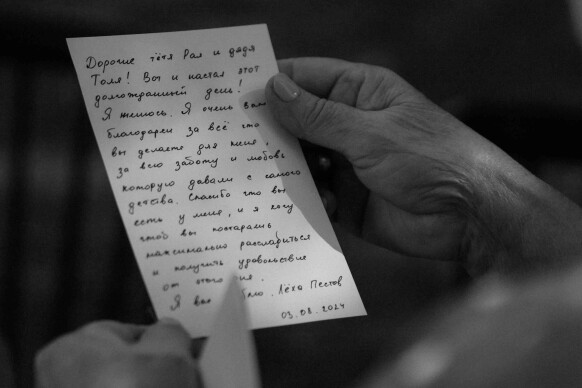 Дорогие тётя Рая и дядя
Толя! Вот и настал этот
долгожданный день!
Я женюсь. Я очень вам
благодарен за всё что
вы делаете для меня,
за всю заботу и любовь
которую давали с самого
детства. Спасибо что вы
есть у меня, и я хочу
чтоб вы постарались
максимально расслабиться
и получить удовольствие
от этого
Я Лёха Пестов
03.08.2024